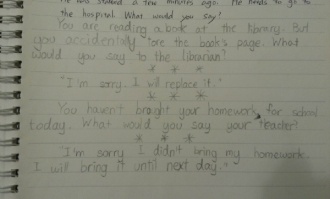 He has [...] a few minutes ago. He needs to go to
the hospital. What would you say?
You are reading a book at the library. But
you accidently tore the book's page. What
would you say to the librarian?
* * *
"I'm sorry. I will replace it."
* * *
You haven't braght your homework for school
today. What would you say your teacher?
* * *
"I'm sorry I didn't bring my homework.
I will bring it until next day."